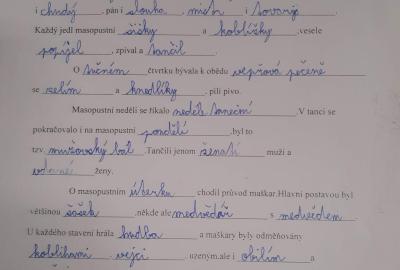 i chudý, páni i slouha, mistr i tovaryš
Každý jedl masopustní šišky a koblížky, vesele
popíjel, zpíval a tančil.
O tučném čtvrtku bývala k obědu vepřová pečeně
se zelím a knedlíky, pili pivo.
Masopustní neděli se říkalo neděle taneční. V tanci se
pokračovalo i na masopustní pondělí, byl to
tzv. mužovský bál. Tančili jenom ženatí muži a
vdané ženy.
O masopustním úterku chodil průvod maškar. Hlavní postavou byl
většinou šašek, někde ale medvědář s medvědem.
U každého stavení hrála hudba a maškary byly odměňovány
koblihami, vejci, uzeným, ale i obilím a